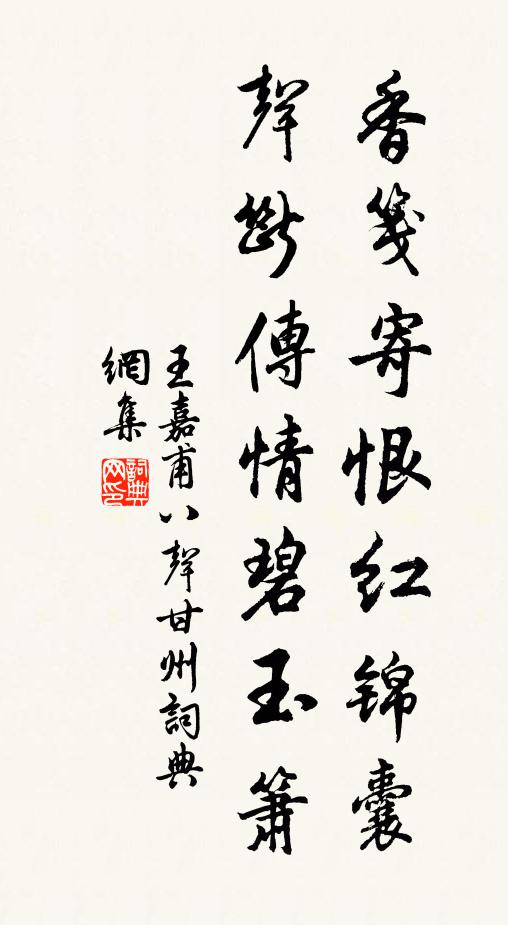 香箋寄恨红锦囊
聲斷傳情碧玉簫
王嘉甫八聲甘州詞典
網集
詞典网印